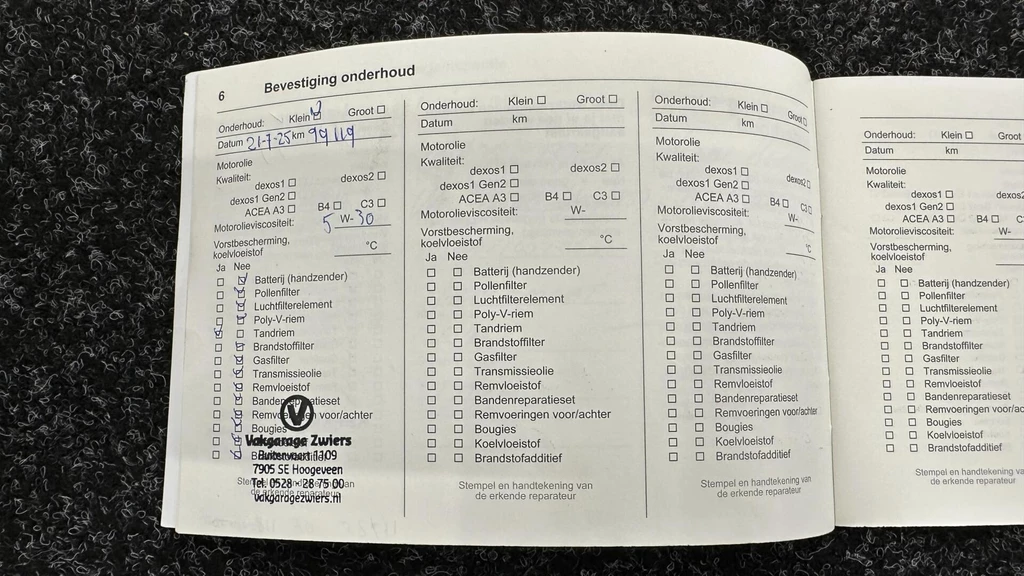 6 Bevestiging onderhoud
Onderhoud: Klein ☑ Groot ☐
Datum 21-7-25 km 99119
Motorolie
Kwaliteit:
dexos1 ☐ dexos2 ☐
dexos1 Gen2 ☐
ACEA A3 ☐ B4 ☐ C3 ☐
Motorolieviscositeit: 5 W-30
Vorstbescherming,
koelvloeistof °C
Ja Nee
☐ ☑ Batterij (handzender)
☐ ☑ Pollenfilter
☐ ☑ Luchtfilterelement
☐ ☑ Poly-V-riem
☑ ☐ Tandriem
☐ ☑ Brandstoffilter
☐ ☑ Gasfilter
☐ ☑ Transmissieolie
☐ ☑ Remvloeistof
☐ ☑ Bandenreparatieset
☐ ☑ Remvoeringen voor/achter
☐ ☑ Bougies
Vakgarage Zwiers
Buitenvaart 1109
7905 SE Hoogeveen
Tel. 0528 - 28 75 00
vakgaragezwiers.nl
Onderhoud: Klein ☐ Groot ☐
Datum km
Motorolie
Kwaliteit:
dexos1 ☐ dexos2 ☐
dexos1 Gen2 ☐
ACEA A3 ☐ B4 ☐ C3 ☐
Motorolieviscositeit: W-
Vorstbescherming,
koelvloeistof °C
Ja Nee
☐ ☐ Batterij (handzender)
☐ ☐ Pollenfilter
☐ ☐ Luchtfilterelement
☐ ☐ Poly-V-riem
☐ ☐ Tandriem
☐ ☐ Brandstoffilter
☐ ☐ Gasfilter
☐ ☐ Transmissieolie
☐ ☐ Remvloeistof
☐ ☐ Bandenreparatieset
☐ ☐ Remvoeringen voor/achter
☐ ☐ Bougies
☐ ☐ Koelvloeistof
☐ ☐ Brandstofadditief
Stempel en handtekening van
de erkende reparateur
Onderhoud: Klein ☐ Groot ☐
Datum km
Motorolie
Kwaliteit:
dexos1 ☐ dexos2 ☐
dexos1 Gen2 ☐
ACEA A3 ☐ B4 ☐ C3 ☐
Motorolieviscositeit: W-
Vorstbescherming,
koelvloeistof °C
Ja Nee
☐ ☐ Batterij (handzender)
☐ ☐ Pollenfilter
☐ ☐ Luchtfilterelement
☐ ☐ Poly-V-riem
☐ ☐ Tandriem
☐ ☐ Brandstoffilter
☐ ☐ Gasfilter
☐ ☐ Transmissieolie
☐ ☐ Remvloeistof
☐ ☐ Bandenreparatieset
☐ ☐ Remvoeringen voor/achter
☐ ☐ Bougies
☐ ☐ Koelvloeistof
☐ ☐ Brandstofadditief
Stempel en handtekening van
de erkende reparateur
Onderhoud: Klein ☐ Groot
Datum km
Motorolie
Kwaliteit:
dexos1 ☐ dexos2
dexos1 Gen2 ☐
ACEA A3 ☐ B4 ☐ C
Motorolieviscositeit: W-
Vorstbescherming,
koelvloeistof
Ja Nee
☐ ☐ Batterij (handzender)
☐ ☐ Pollenfilter
☐ ☐ Luchtfilterelement
☐ ☐ Poly-V-riem
☐ ☐ Tandriem
☐ ☐ Brandstoffilter
☐ ☐ Gasfilter
☐ ☐ Transmissieolie
☐ ☐ Remvloeistof
☐ ☐ Bandenreparatieset
☐ ☐ Remvoeringen voor/ac
☐ ☐ Bougies
☐ ☐ Koelvloeistof
☐ ☐ Brandstofadditief
Stempel en handtekening
de erkende reparateur